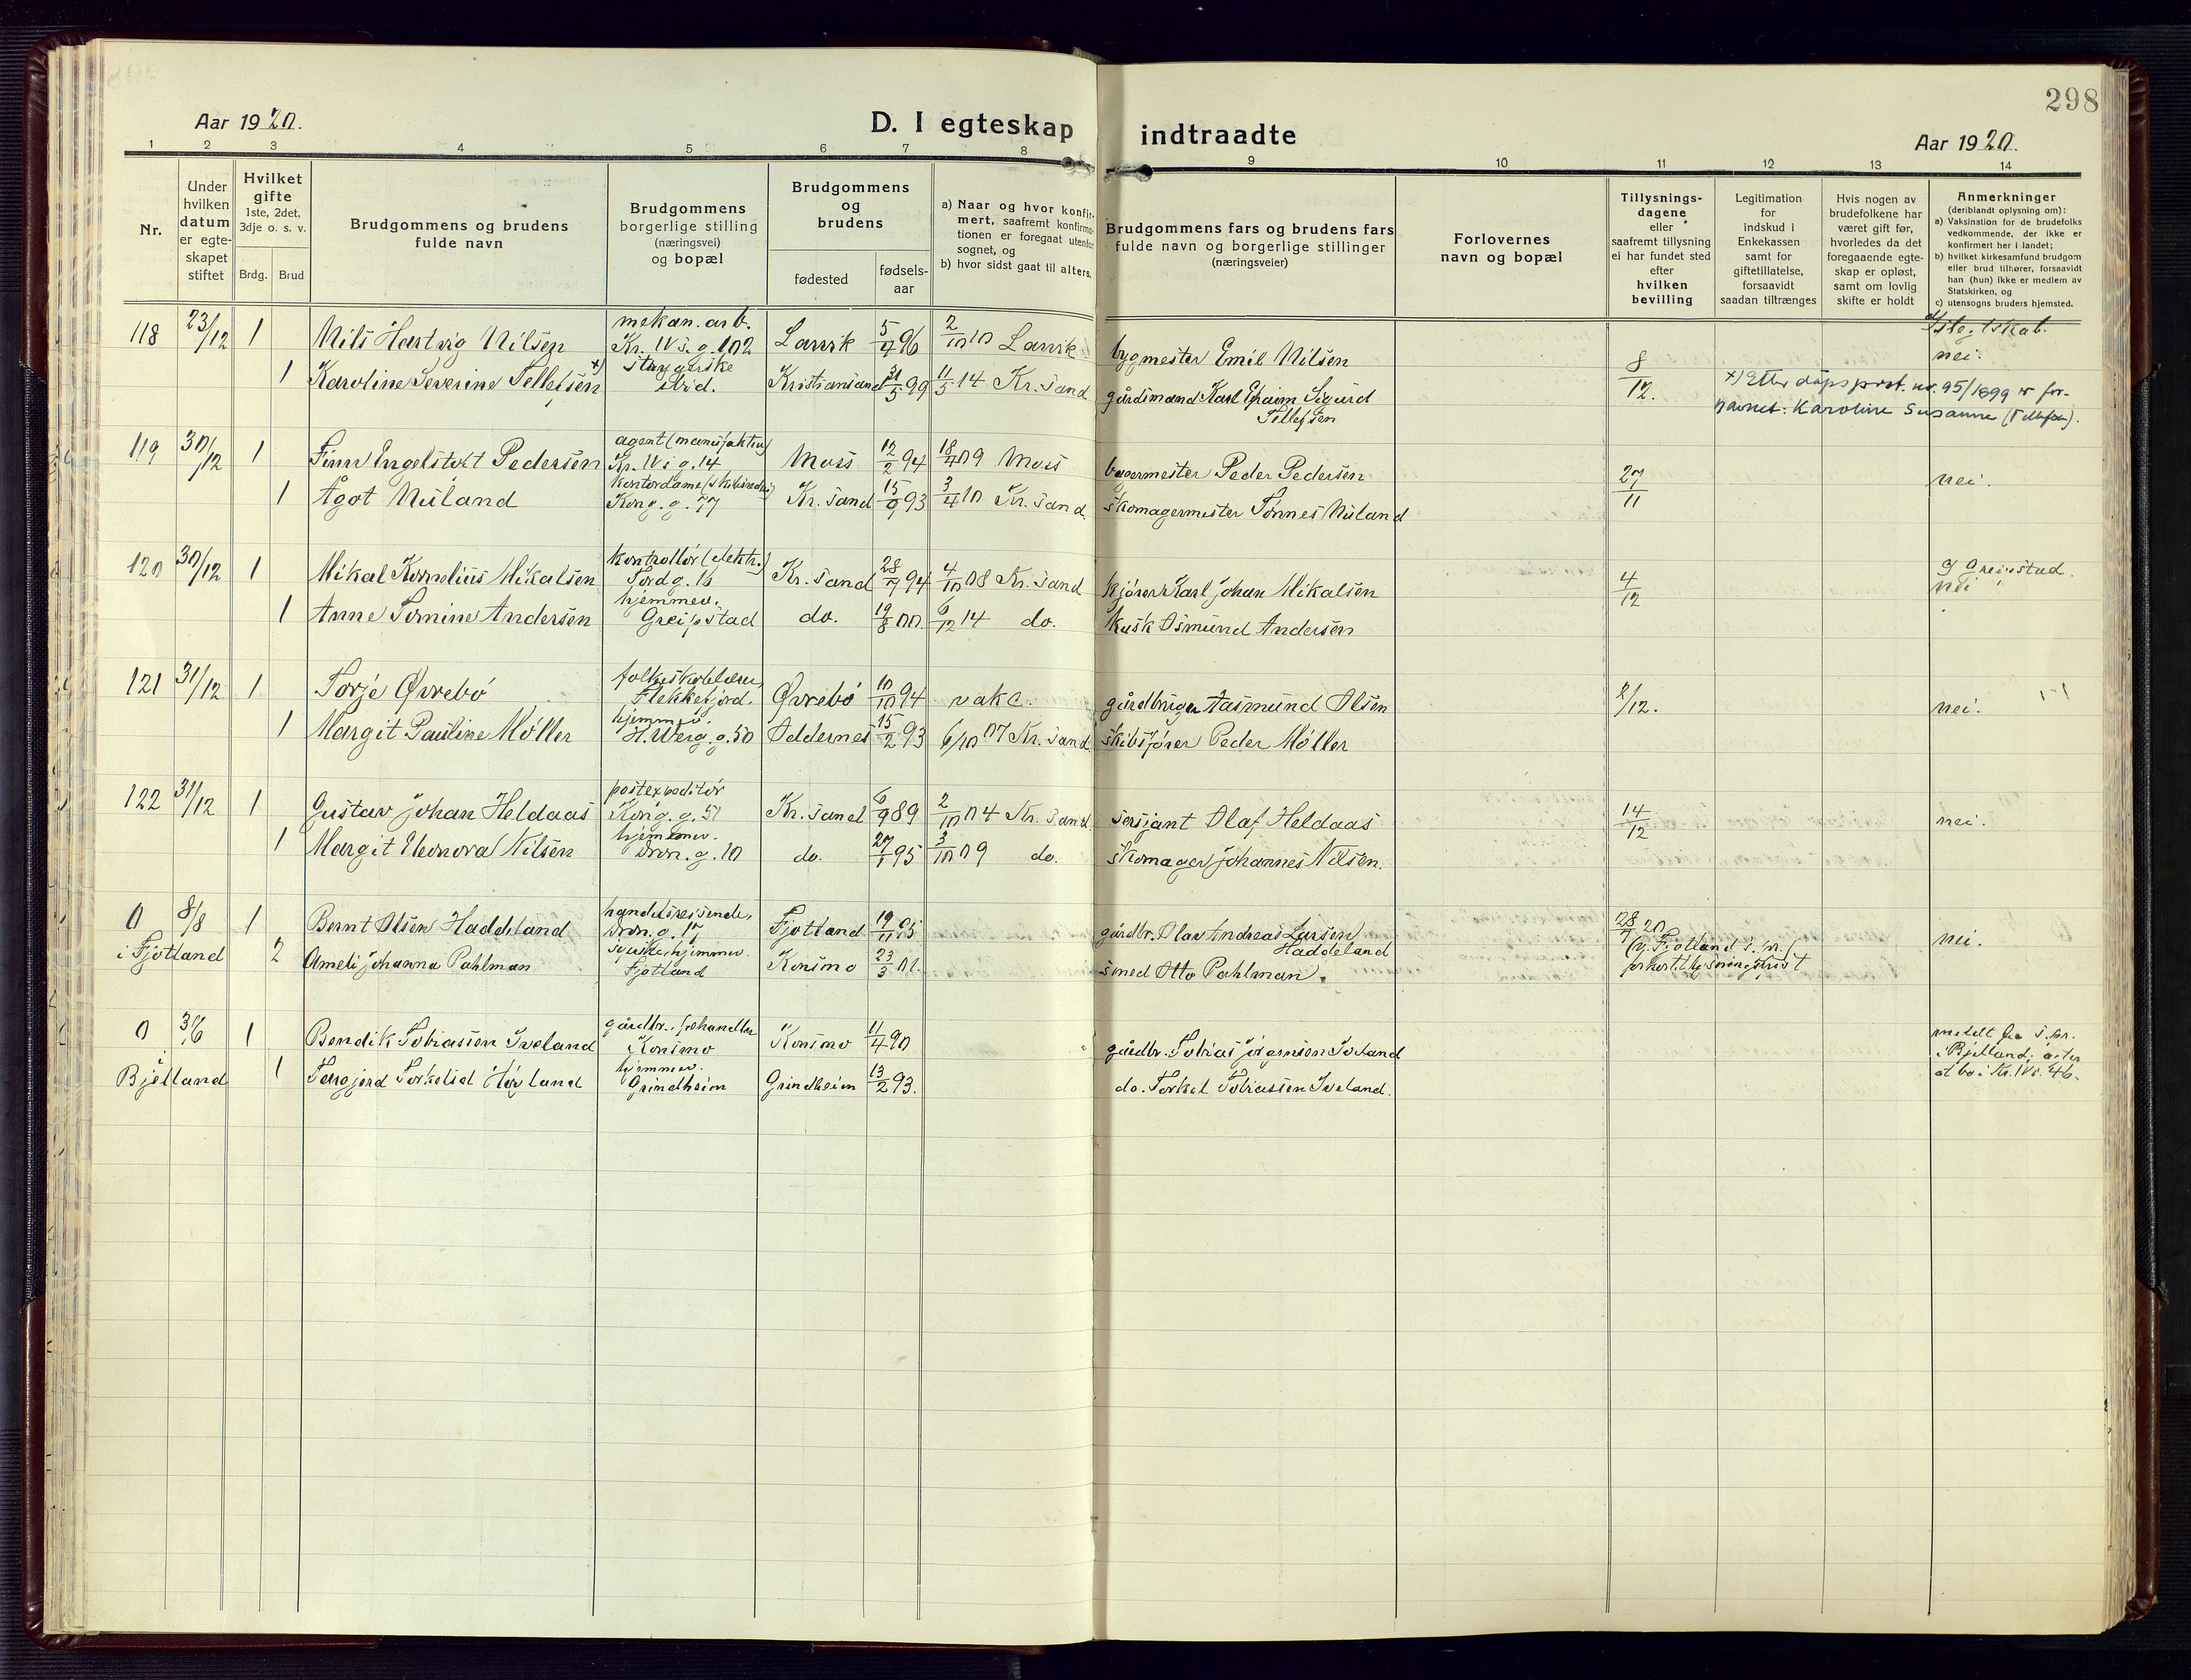 298
Aar 1920.
D. I egteskap indtraadte
Aar 1920.
1 2 3 4 5 6 7 8 9 10 11 12 13 14
Nr.
Under hvilken datum er egteskapet stiftet
Hvilket gifte 1ste, 2det, 3dje o. s. v.
Brdg. Brud
Brudgommens og brudens fulde navn
Brudgommens borgerlige stilling (næringsvei) og bopæl
Brudgommens og brudens
fødested
fødsels-aar
a) Naar og hvor konfirmert, saafremt konfirmationen er foregaat utenfor sognet, og
b) hvor sidst gaat til alters.
Brudgommens fars og brudens fars fulde navn og borgerlige stillinger (næringsveier)
Forlovernes navn og bopæl
Tillysningsdagene eller saafremt tillysning ei har fundet sted efter hvilken bevilling
Legitimation for indskud i Enkekassen samt for giftetillatelse, forsaavidt saadan tiltrænges
Hvis nogen av brudefolkene har været gift før, hvorledes da det foregaaende egteskap er opløst, samt om lovlig skifte er holdt
Anmerkninger (deriblandt oplysning om):
a) Vaksination for de brudefolks vedkommende, der ikke er konfirmert her i landet;
b) hvilket kirkesamfund brudgom eller brud tilhører, forsaavidt han (hun) ikke er medlem av Statskirken, og
c) utensogns bruders hjemsted.
118 23/12 1 Nils Hartvig Nilsen mekan. arb. Kr. IVs. g. 102 Larvik 5/4 96 2/10 10 Larvik bygmester Emil Nilsen 8/12. nei.
1 Karoline Severine Tellefsen x) strygerske ibid. Kristiansand 31/5 99 11/5 14 Kr. sand gårdsmand Karl Efraim Sigurd Tellefsen
x) Etter dåpsprot. nr. 95/1899 er for-
navnet: Karoline Susanne (Tellefsen).
119 30/12 1 Finn Engelstoft Pedersen agent (manufaktur) Kr. IVs g. 14 Moss 12/2 94 18/4 09 Moss bagermester Peder Pedersen 27/11 nei.
1 Ågot Nuland kontordame Kong. g. 77 Kr. sand 15/9 93 3/4 10 Kr. sand. skomagermester Tønnes Nuland
120 30/12 1 Mikal Kornelius Mikalsen kontrollør (elektr.) Tordg. 16 Kr. sand 28/7 94 4/10 08 Kr. sand kjører Karl Johan Mikalsen 4/12 Greipstad. nei
1 Anne Tomine Andersen hjemmev. Greipstad do. 19/8 00. 6/12 14 do. kusk Osmund Andersen
121 31/12 1 Torje Øvrebø folkeskolelærer, Flekkefjord. Øvrebø 10/10 94 vake. gårdbruger Aasmund Olsen 2/12. nei.
1 Margit Pauline Møller hjemmev. H. Werg. g. 50 Oddernes 15/2 93 6/10 07 Kr. sand skibsfører Peder Møller
122 31/12 1 Gustav Johan Heldaas postexpeditør Kong. g. 51 Kr. sand 6/9 89 2/10 04 Kr. sand sersjant Olaf Heldaas 14/12 nei.
1 Margit Eleonora Nilsen hjemmev. Dron. g. 10 do. 27/1 95 3/10 09 do. skomager Johannes Nilsen.
0 8/8 1 Bernt Olsen Haddeland handelsreisende, Dron. g. 17 Fjotland 19/11 95 gårdbr. Olav Andreas Larsen Haddeland 28/7 20 nei.
i Fjotland 2 Ameli Johanna Pahlman hjemmev. Fjotland Konsmo 23/3 01. smed Otto Pahlman.
(v. Fjotland s. m.)
forkort. lysningsfrist
0 3/6 1 Bendik Tobiassen Iveland gårdbr., frøhandler Konsmo Konsmo 11/4 90 gårdbr. Tobias Jørgensen Iveland
i Bjelland 1 Torkelsd Høyland hjemmev. Grindheim Grindheim 13/2 93. do. Torkel Tobiassen Iveland.
meldt fra s.pr.
i Bjelland; akter
at bo i Kr. IVs. 46.